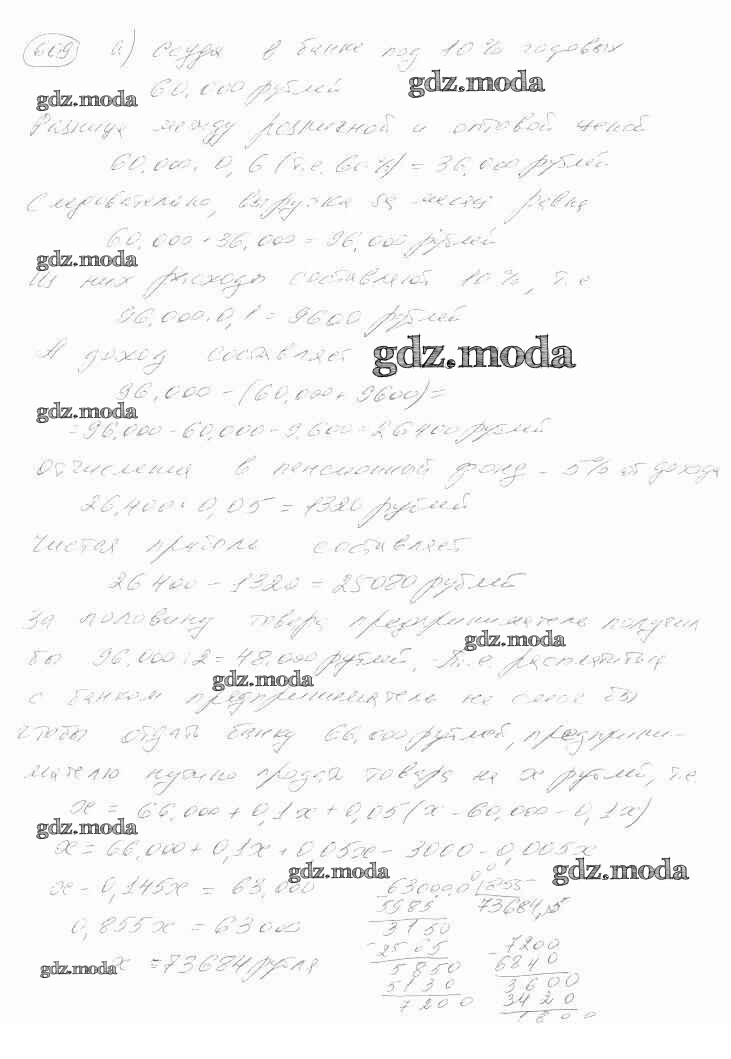 669 а) Ссуда в банке под 10% годовых
gdz.moda
60.000 рублей
gdz.moda
Разница между розничной и оптовой ценой
60.000 · 0,6 (т.е. 60%) = 36.000 рублей
Следовательно, выручка за месяц равна
60.000 + 36.000 = 96.000 рублей
gdz.moda
Из них расходы составляют 10%, т.е
96.000 · 0,1 = 9600 рублей
А доход составляет
gdz.moda
96.000 - (60.000 + 9600) =
gdz.moda
= 96.000 - 60.000 - 9.600 = 26400 рублей
отчисления в пенсионный фонд - 5% от дохода
26.400 · 0,05 = 1320 рублей
Чистая прибыль составляет
26400 - 1320 = 25080 рублей
За половину товара предприниматель получил
gdz.moda
бы 96.000 : 2 = 48.000 рублей, т.е. расплатиться
gdz.moda
с банком предприниматель не смог бы
чтобы отдать банку 66.000 рублей, предприни-
мателю нужно продать товара на x рублей, т.е.
x = 66.000 + 0,1x + 0,05(x - 60.000 - 0,1x)
gdz.moda
x = 66.000 + 0,1x + 0,05x - 3000 - 0,005x
gdz.moda
gdz.moda
x - 0,145x = 63.000
0,855x = 63000
x = 73684 рубля
gdz.moda
5985
73684,5
3150
2565
5850
5130
7200
7200
6840
3600
3420
1800